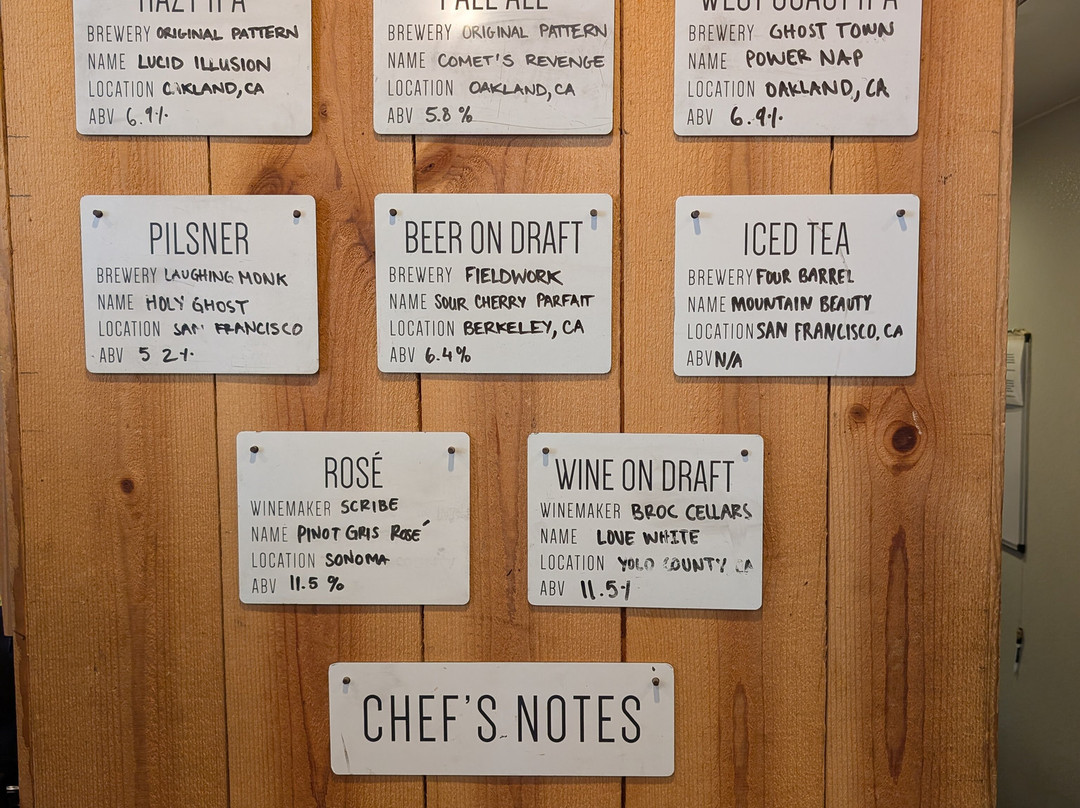 HAZY IPA
BREWERY ORIGINAL PATTERN
NAME LUCID ILLUSION
LOCATION OAKLAND, CA
ABV 6.9%
PALE ALE
BREWERY ORIGINAL PATTERN
NAME COMET'S REVENGE
LOCATION OAKLAND, CA
ABV 5.8 %
WEST COAST IPA
BREWERY GHOST TOWN
NAME POWER NAP
LOCATION OAKLAND, CA
ABV 6.9%
PILSNER
BREWERY LAUGHING MONK
NAME HOLY GHOST
LOCATION SAN FRANCISCO
ABV 5 2%
BEER ON DRAFT
BREWERY FIELDWORK
NAME SOUR CHERRY PARFAIT
LOCATION BERKELEY, CA
ABV 6.4%
ICED TEA
BREWERY FOUR BARREL
NAME MOUNTAIN BEAUTY
LOCATION SAN FRANCISCO, CA
ABV N/A
ROSÉ
WINEMAKER SCRIBE
NAME PINOT GRIS ROSÉ
LOCATION SONOMA
ABV 11.5 %
WINE ON DRAFT
WINEMAKER BROC CELLARS
NAME LOVE WHITE
LOCATION YOLO COUNTY CA
ABV 11.5%
CHEF'S NOTES